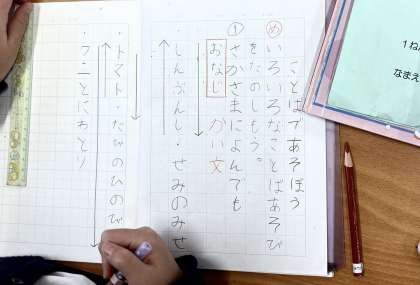 ことばであそぼう
め いろいろなことばあそび
をたのしもう。
① さかさまによんでも
おなじ かい文
・しんぶんし・せみのみせ
・トマト・たびのひのびた
・ワニとにわとり
1ねん
なまえ